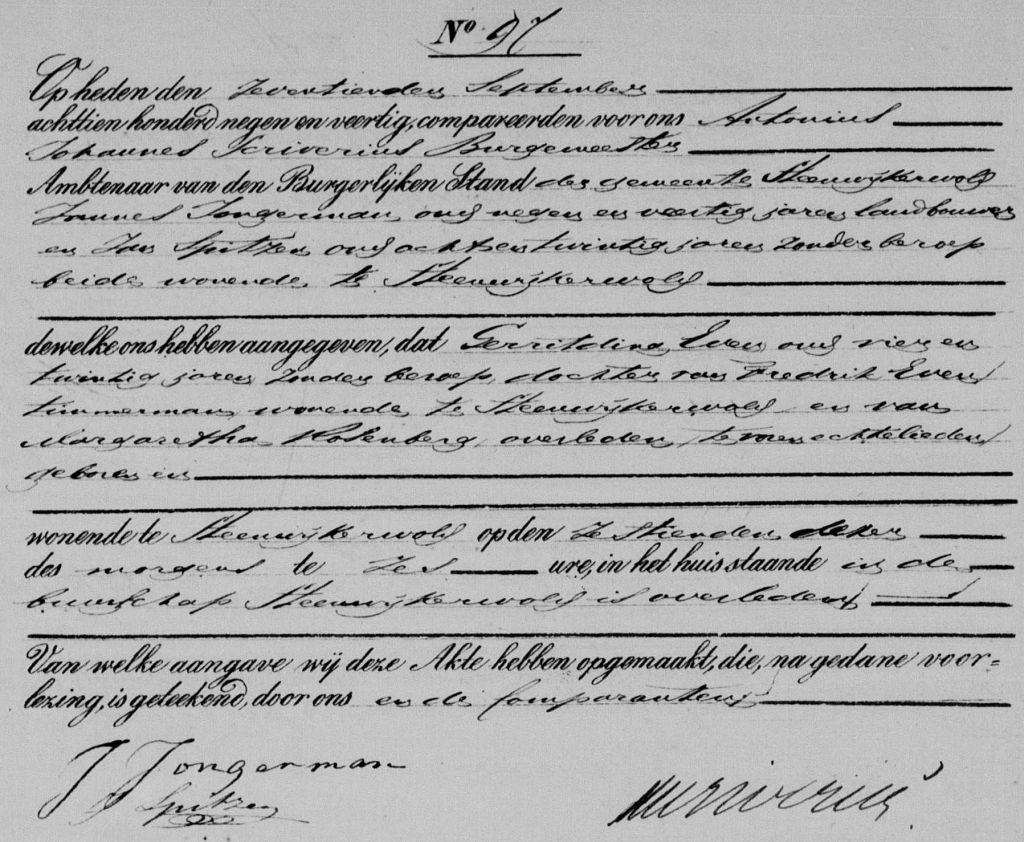 No 97
Op heden den zeventienden September
achttien honderd negen en veertig, compareerden voor ons Antonius
Johannes Scriverius Burgemeester
Ambtenaar van den Burgerlijken Stand der gemeente Steenwijkerwold
Jannes Jongerman oud negen en veertig jaren landbouwer
en Jan Spitzen oud acht en twintig jaren zonder beroep
beide wonende te Steenwijkerwold
dewelke ons hebben aangegeven, dat Gerritdina Even oud vier en
twintig jaren zonder beroep, dochter van Fredrik Even
timmerman wonende te Steenwijkerwold en van
Margaretha Rosenberg overleden, tevoren echtelieden
geboren en
wonende te Steenwijkerwold op den zestienden dezer
des morgens te zes ure, in het huis staande in de
buurschap Steenwijkerwold is overleden
Van welke aangave wij deze Akte hebben opgemaakt, die, na gedane voor=
lezing, is geteekend, door ons en de Comparanten
J Jongerman
J Spitzen